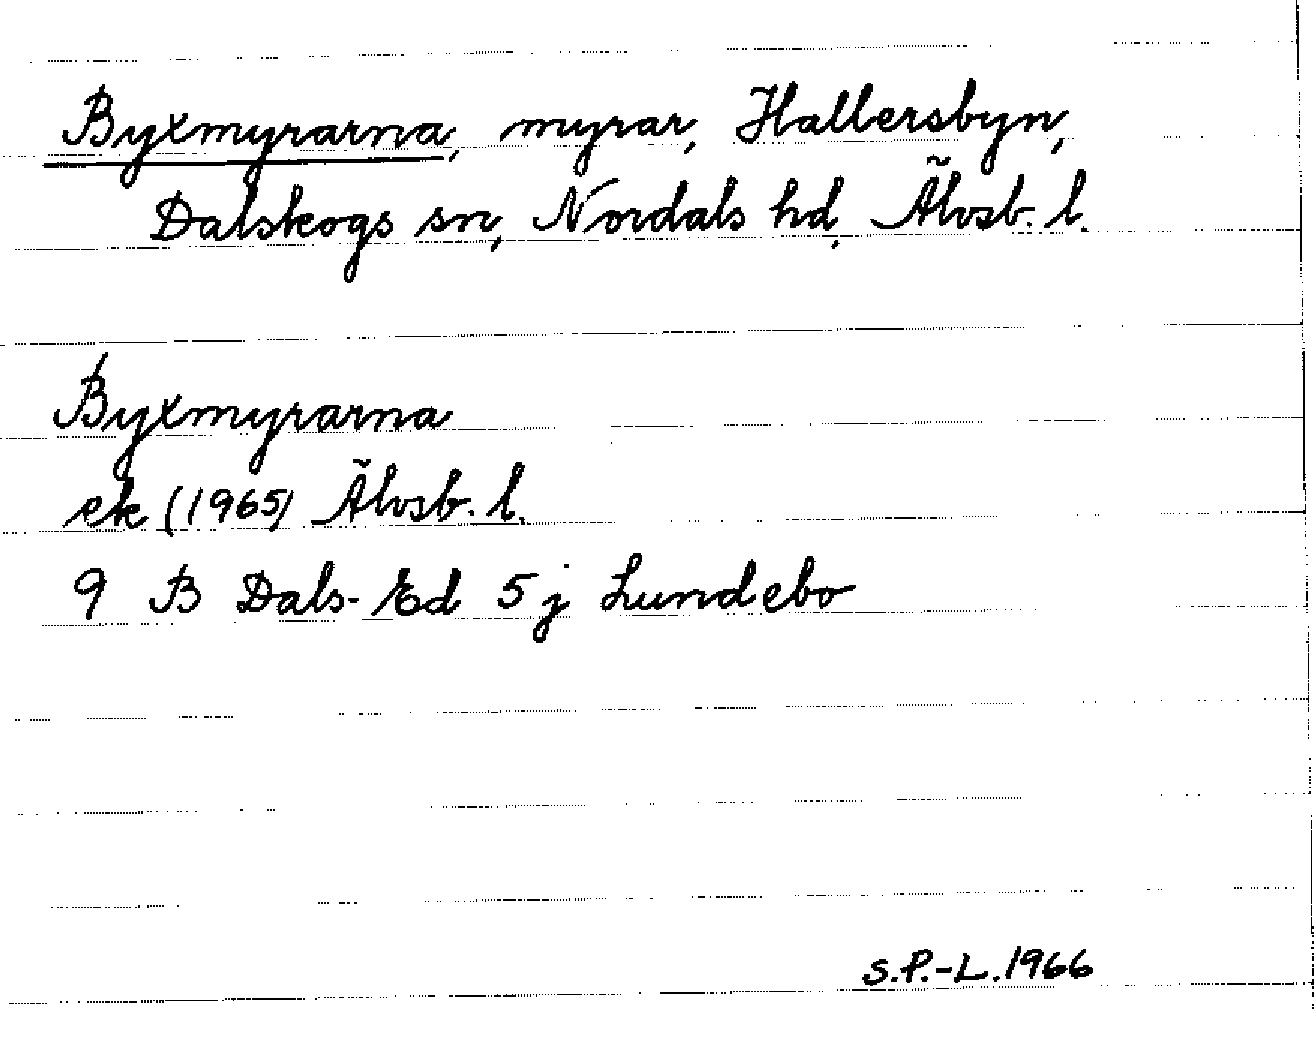 Byxmyrarna, myrar, Hallersbyn,
Dalskogs sn, Nordals hd, Älvsb. l.
Byxmyrarna
ek (1965) Älvsb. l.
9 B Dals-Ed 5 j Lundebo
S.P.-L. 1966